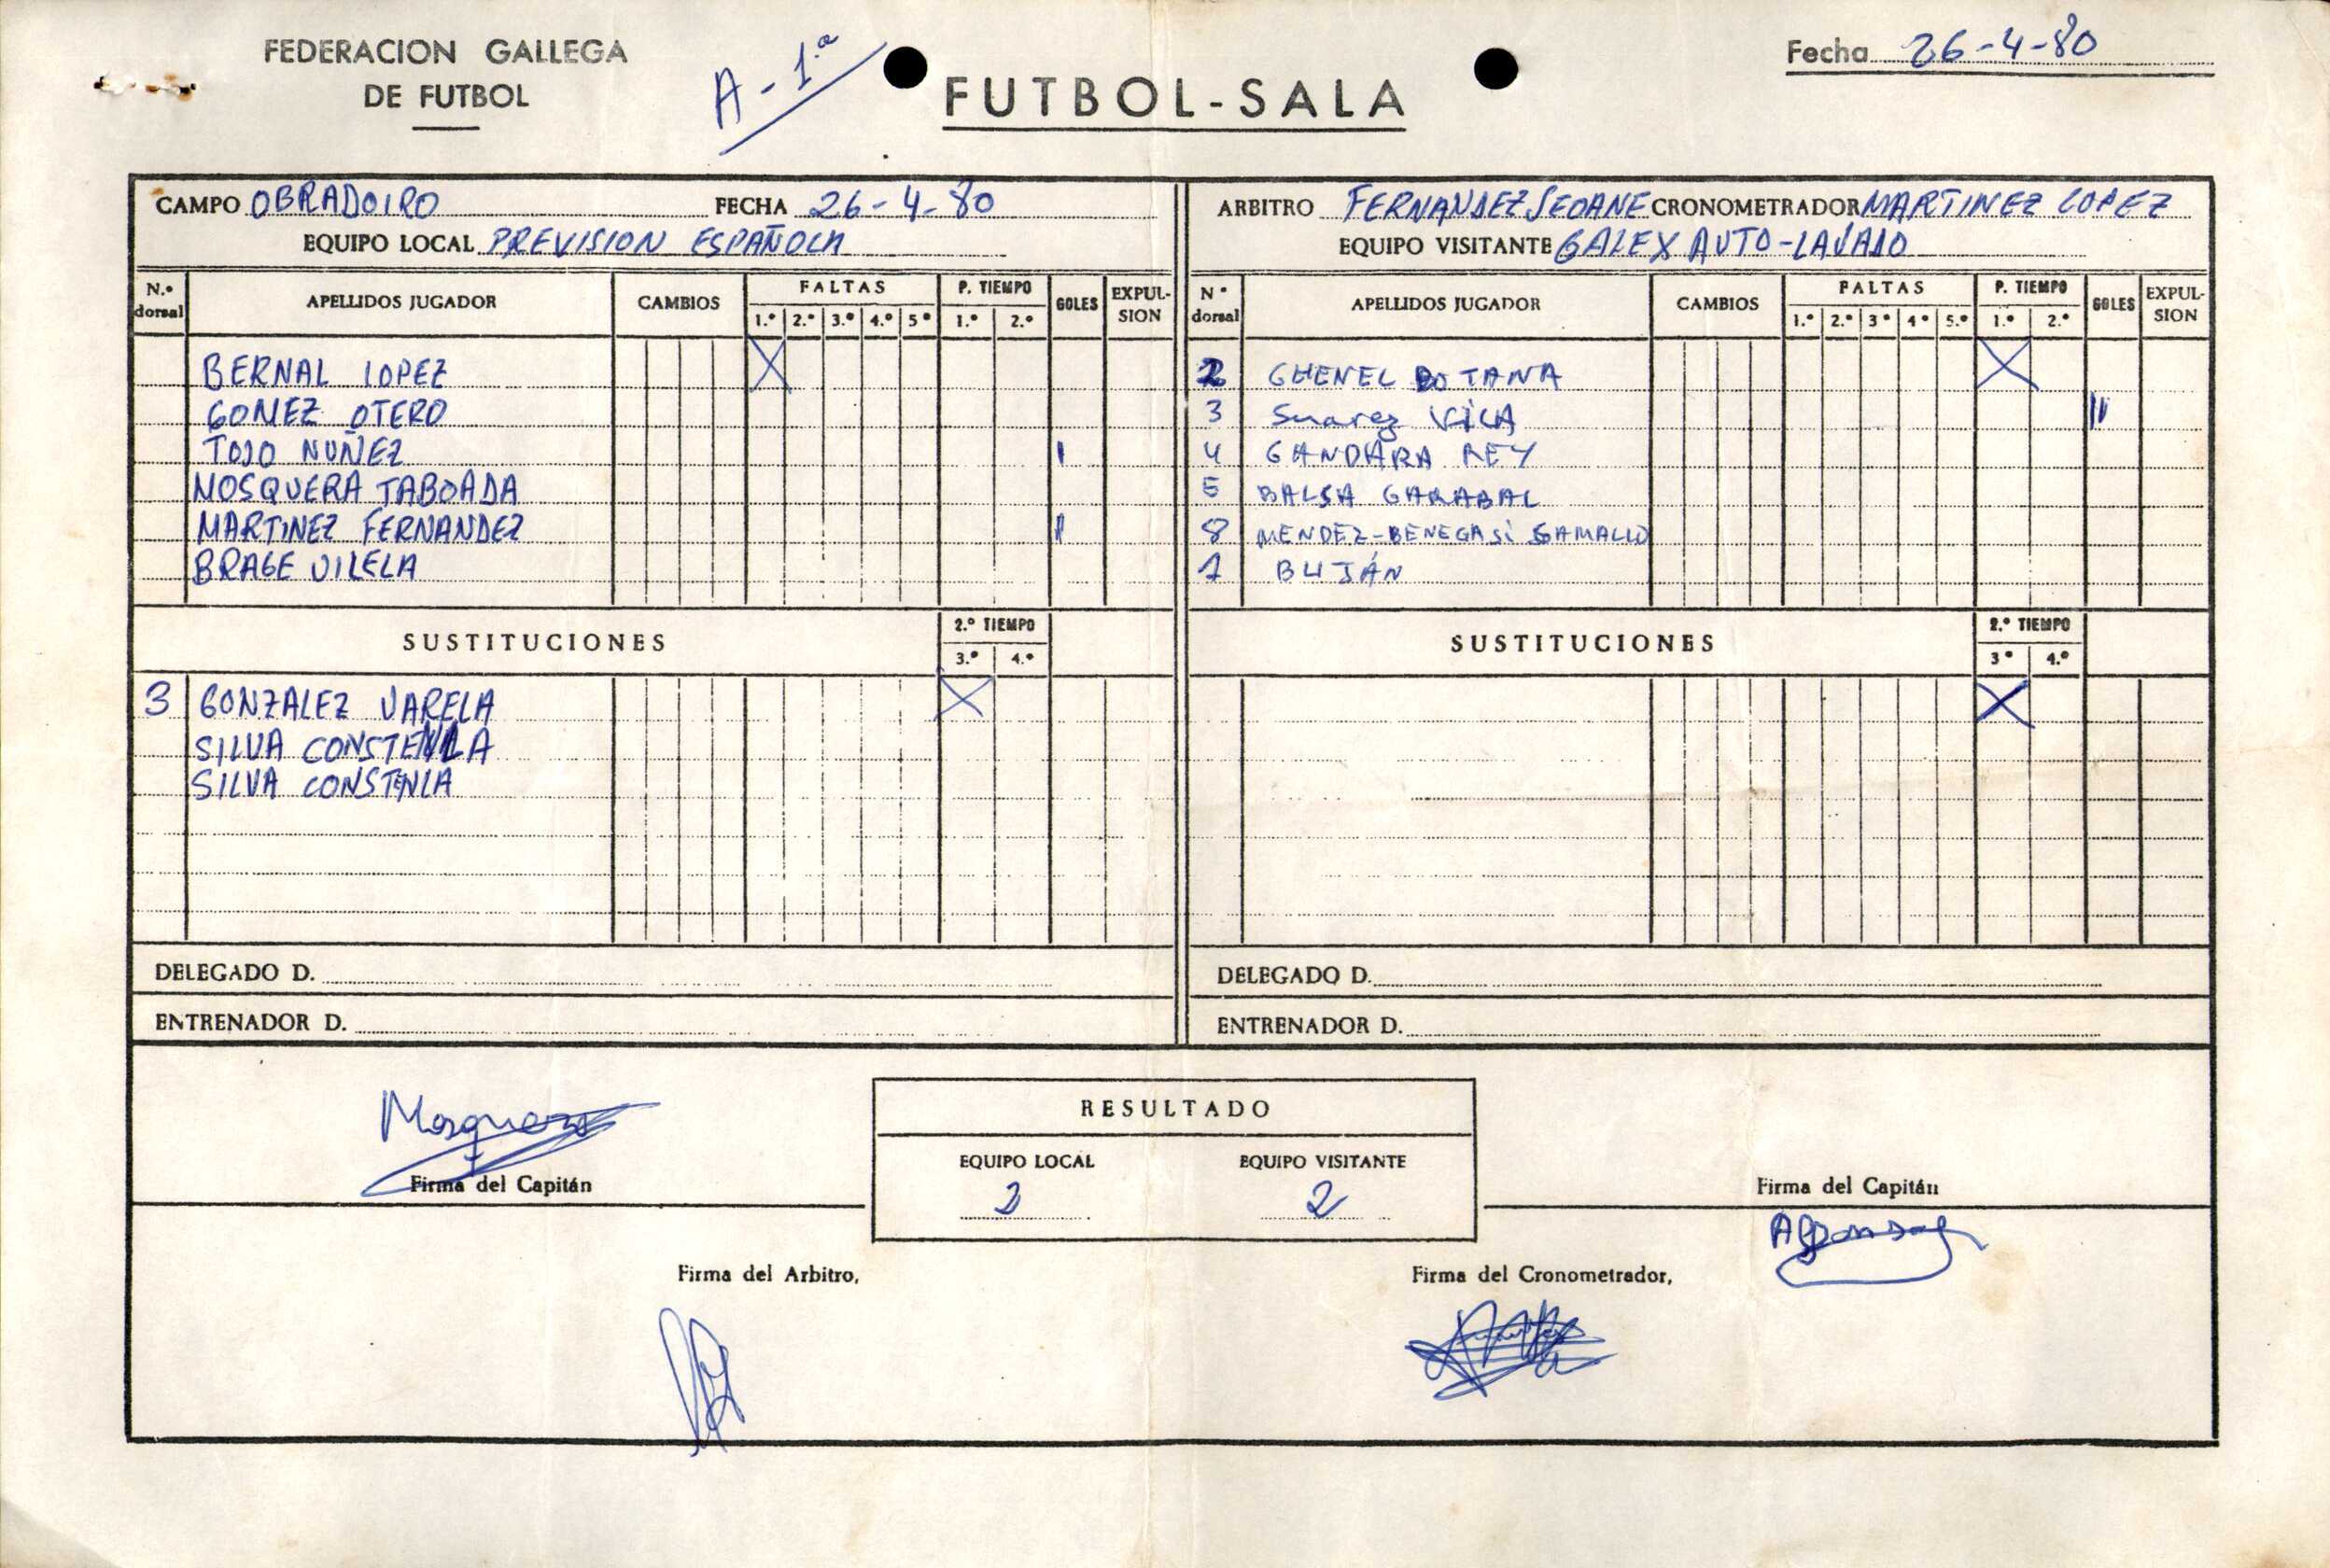 FEDERACION GALLEGA
DE FUTBOL
A-1.ª
FUTBOL-SALA
Fecha 26-4-80
CAMPO OBRADOIRO FECHA 26-4-80
EQUIPO LOCAL PREVISION ESPAÑOLA
N.º dorsal APELLIDOS JUGADOR CAMBIOS FALTAS P. TIEMPO GOLES EXPUL-SION
1.º 2.º 3.º 4.º 5º 1.º 2.º
BERNAL LOPEZ X
GOMEZ OTERO
TOJO NUÑEZ I
MOSQUERA TABOADA
MARTINEZ FERNANDEZ I
BRAGE VILELA
SUSTITUCIONES 2.º TIEMPO
3.º 4.º
3 GONZALEZ VARELA X
SILVA CONSTENLA
SILVA CONSTENLA
DELEGADO D.
ENTRENADOR D.
ARBITRO FERNANDEZ SEOANE CRONOMETRADOR MARTINEZ LOPEZ
EQUIPO VISITANTE GALEX AUTO-LAVADO
Nº dorsal APELLIDOS JUGADOR CAMBIOS FALTAS P. TIEMPO GOLES EXPUL-SION
1.º 2.º 3º 4º 5.º 1.º 2.º
2 GHENEL BOTANA X
3 Suarez VILA II
4 GANDARA REY
5 BALSA GARABAL
8 MENDEZ-BENEGASi GAMALLO
1 BUJÁN
SUSTITUCIONES 2.º TIEMPO
3º 4.º
X
DELEGADO D.
ENTRENADOR D.
Mosquera
Firma del Capitán
RESULTADO
EQUIPO LOCAL EQUIPO VISITANTE
2 2
Firma del Capitán
Firma del Arbitro,
Firma del Cronometrador,